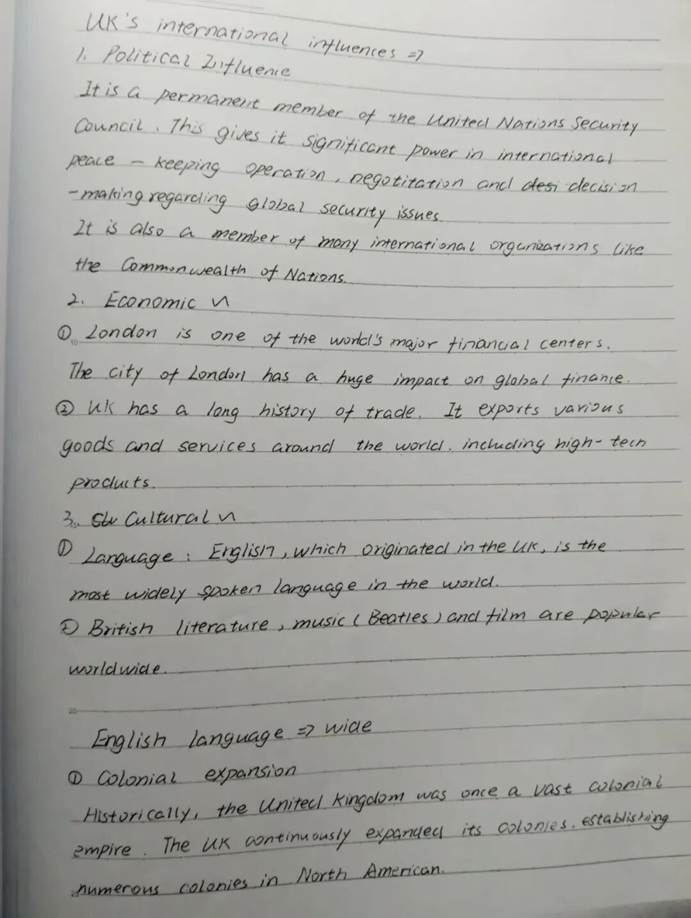 UK's international influences ⇒
1. Political Influence
It is a permanent member of the United Nations Security
Council. This gives it significant power in international
peace - keeping operation, negotitation and desi decision
-making regarding global security issues
It is also a member of many international organizations like
the Commonwealth of Nations.
2. Economic ~
① London is one of the world's major financial centers.
The city of London has a huge impact on global finance.
② UK has a long history of trade. It exports various
goods and services around the world, including high-tech
products.
3. Cultural ~
① Language: English, which originated in the UK, is the
most widely spoken language in the world.
② British literature, music (Beatles) and film are popular
worldwide.
English language ⇒ wide
① Colonial expansion
Historically, the United Kingdom was once a vast colonial
empire. The UK continuously expanded its colonies, establishing
numerous colonies in North American.